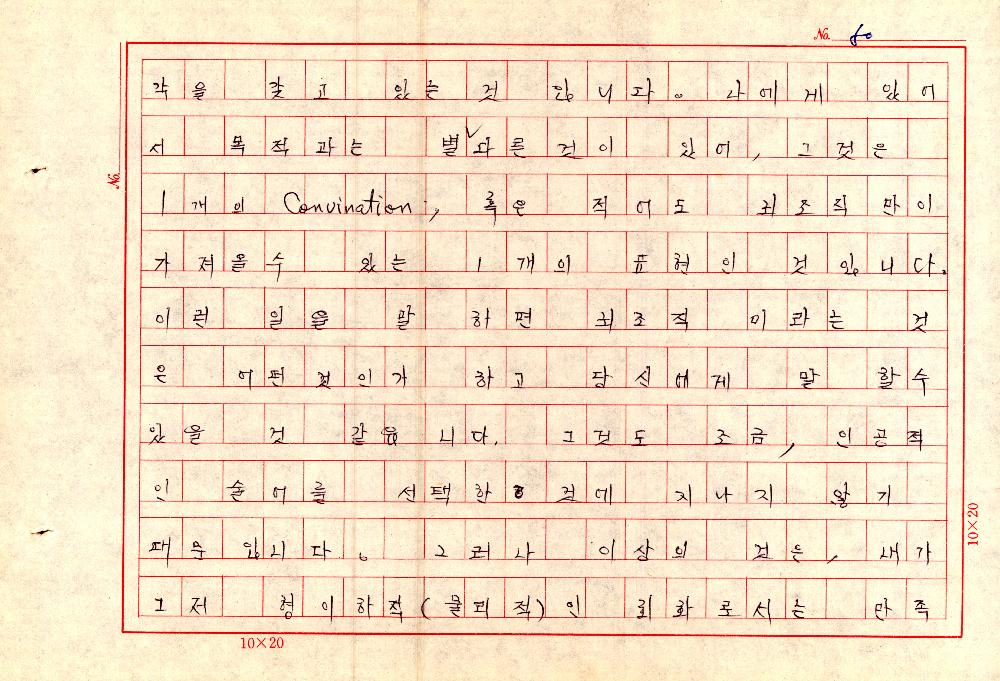 No. 60
각을 갖고 있는 것 입니다. 나에게 있어
서 목적과는 별 다른 것이 있어, 그것은
No.
1개의 Convination, 혹은 적어도 최조직만이
가져올수 있는 1개의 표현인 것입니다.
이런 일을 말 하면 최조적 미라는 것
은 어떤것인가 하고 당신에게 말 할수
있을 것 같읍니다. 그것도 조금, 인공적
인 술어를 선택한 것에 지나지 않기
때문 입니다. 그러나 이상의 것은, 내가
그저 형이하적(물리적)인 회화로서는 만족
10×20
10×20